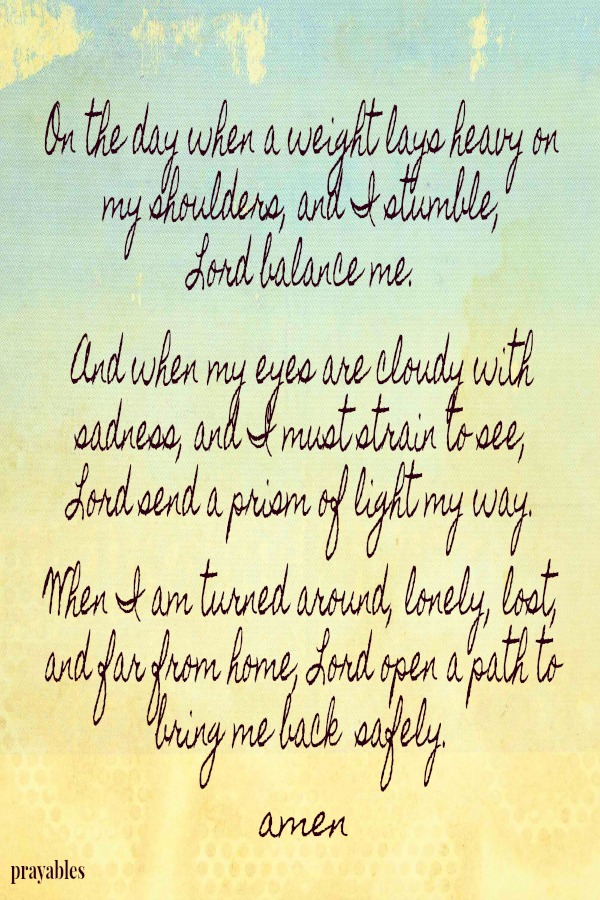 On the day when a weight lays heavy on
my shoulders, and I stumble,
Lord balance me.
And when my eyes are cloudy with
sadness, and I must strain to see,
Lord send a prism of light my way.
When I am turned around, lonely, lost,
and far from home, Lord open a path to
bring me back safely.
amen
prayables